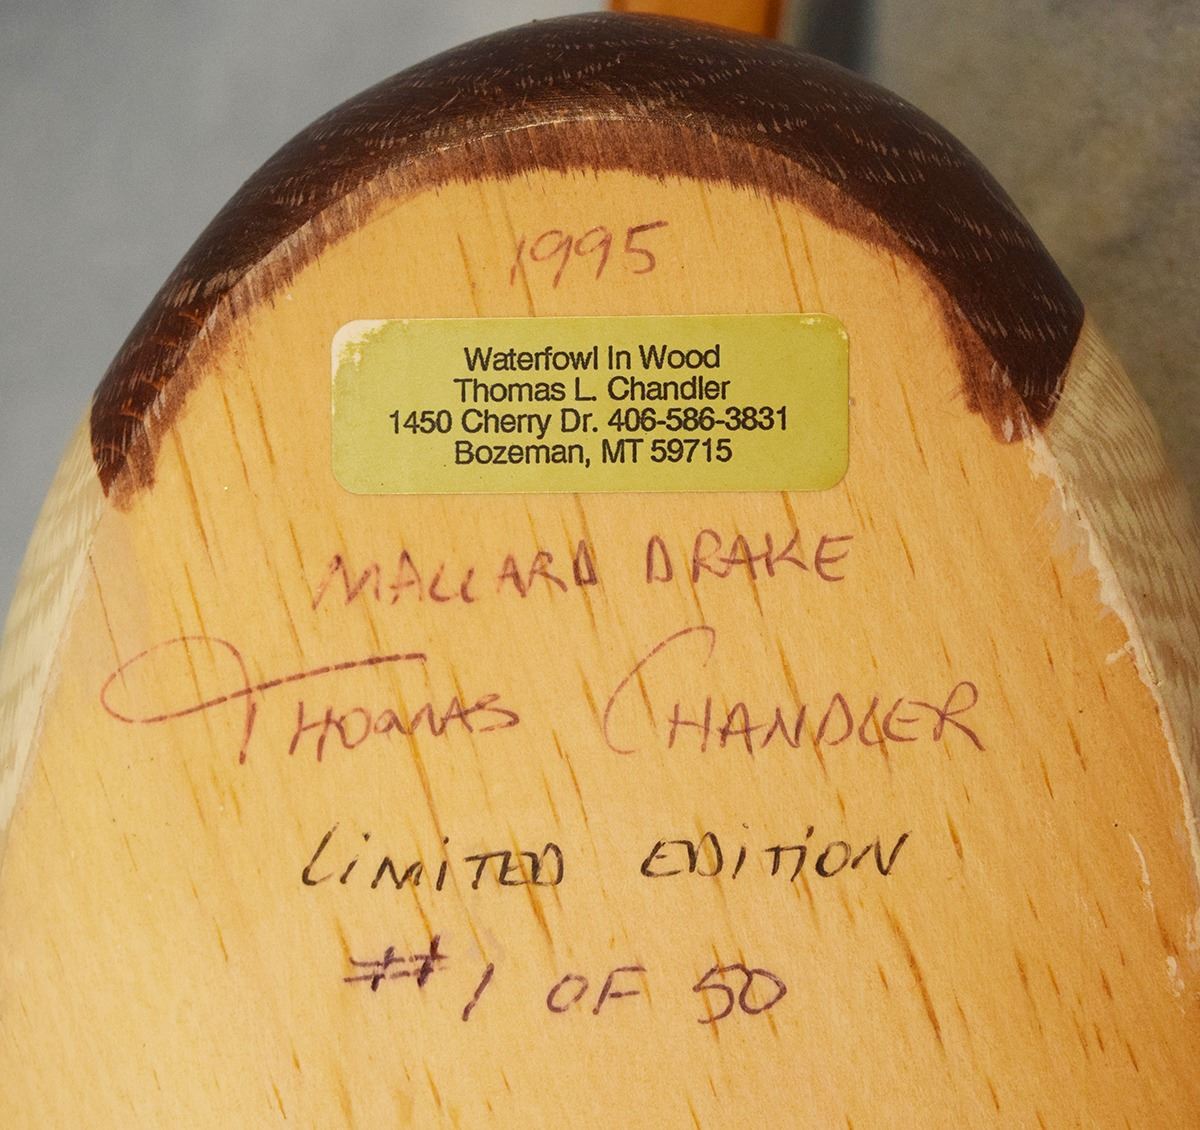 1995
Waterfowl In Wood
Thomas L. Chandler
1450 Cherry Dr. 406-586-3831
Bozeman, MT 59715
MALLARD DRAKE
THOMAS CHANDLER
LiMiTED EDiTiON
# 1 OF 50